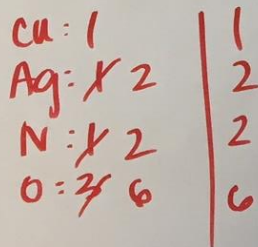 Cu: 1 | 1
Ag: 1 2 | 2
N: 1 2 | 2
O: 3 6 | 6